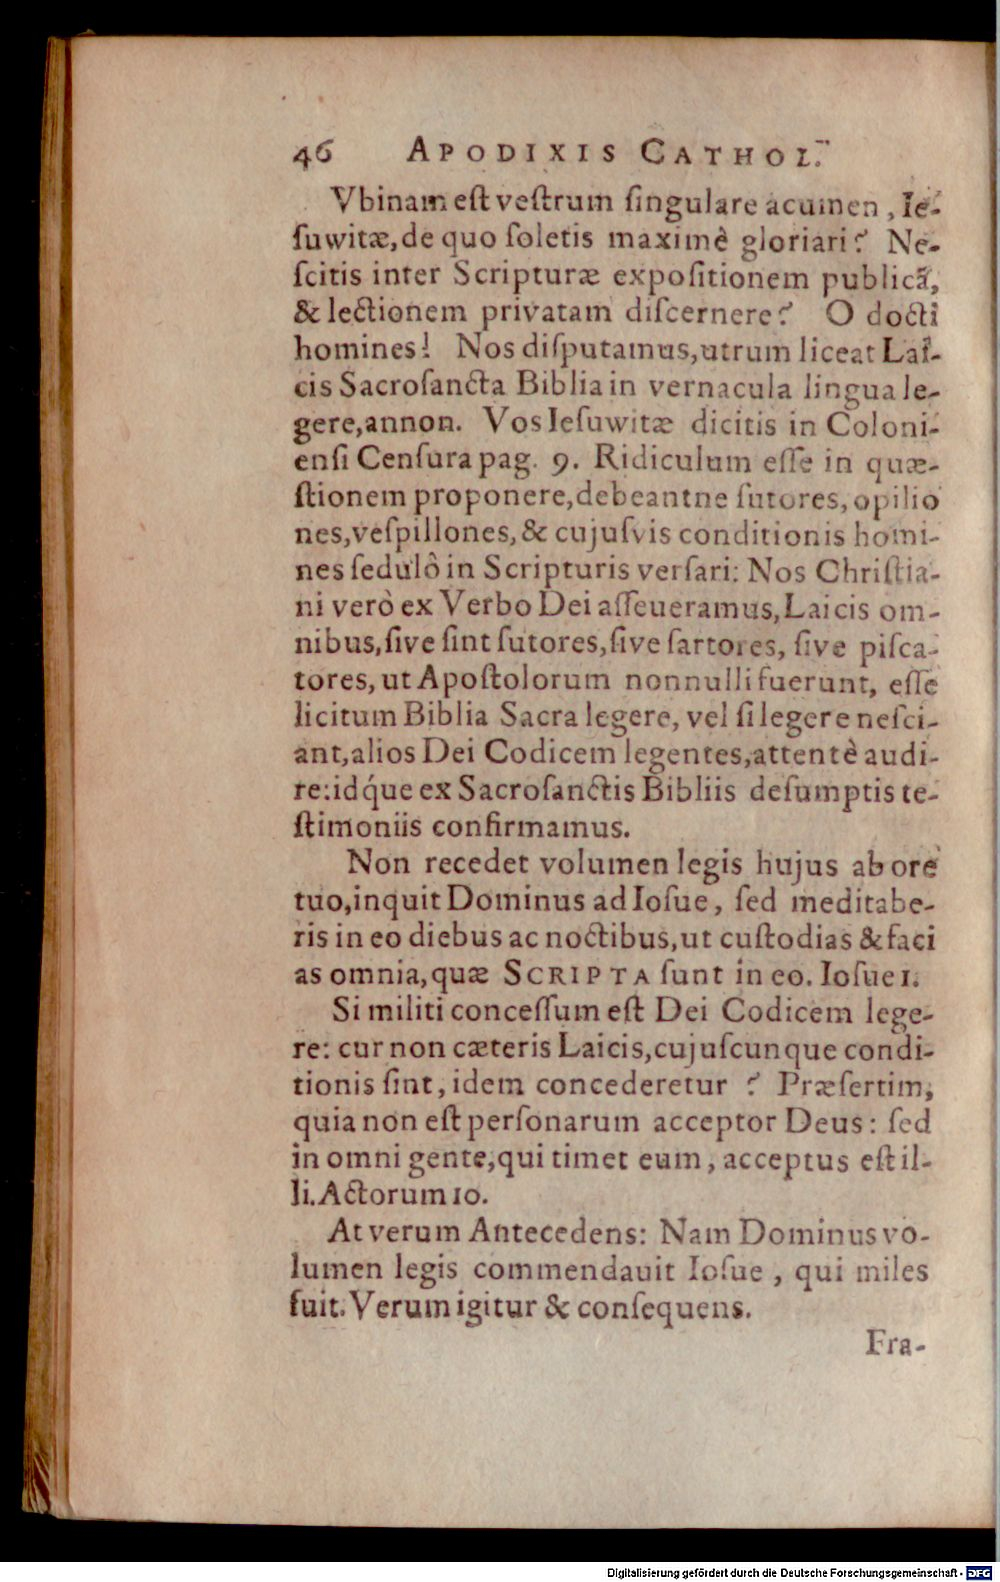 46 APODIXIS CATHOL.
Vbinam eſt veſtrum ſingulare acumen, Ie-
ſuwitæ, de quo ſoletis maximè gloriari? Ne-
ſcitis inter Scripturæ expoſitionem publicã,
& lectionem privatam diſcernere? O docti
homines! Nos diſputamus, utrum liceat Laï-
cis Sacroſancta Biblia in vernacula lingua le-
gere, annon. Vos Ieſuwitæ dicitis in Coloni-
enſi Cenſura pag. 9. Ridiculum eſſe in quæ-
ſtionem proponere, debeantne ſutores, opilio
nes, veſpillones, & cujuſvis conditionis homi-
nes ſedulò in Scripturis verſari: Nos Chriſtia-
ni verò ex Verbo Dei aſſeueramus, Laicis om-
nibus, ſive ſint ſutores, ſive ſartores, ſive piſca-
tores, ut Apoſtolorum nonnulli fuerunt, eſſe
licitum Biblia Sacra legere, vel ſi legere neſci-
ant, alios Dei Codicem legentes, attentè audi-
re: idq́ue ex Sacroſanctis Bibliis deſumptis te-
ſtimoniis confirmamus.
Non recedet volumen legis hujus ab ore
tuo, inquit Dominus ad Ioſue, ſed meditabe-
ris in eo diebus ac noctibus, ut cuſtodias & faci
as omnia, quæ SCRIPTA ſunt in eo. Ioſue 1.
Si militi conceſſum eſt Dei Codicem lege-
re: cur non cæteris Laicis, cujuſcunque condi-
tionis ſint, idem concederetur? Præſertim,
quia non eſt perſonarum acceptor Deus: ſed
in omni gente, qui timet eum, acceptus eſt il-
li. Actorum 10.
At verum Antecedens: Nam Dominus vo-
lumen legis commendauit Ioſue, qui miles
fuit. Verum igitur & conſequens.
Fra-
Digitalisierung gefördert durch die Deutsche Forschungsgemeinschaft - DFG